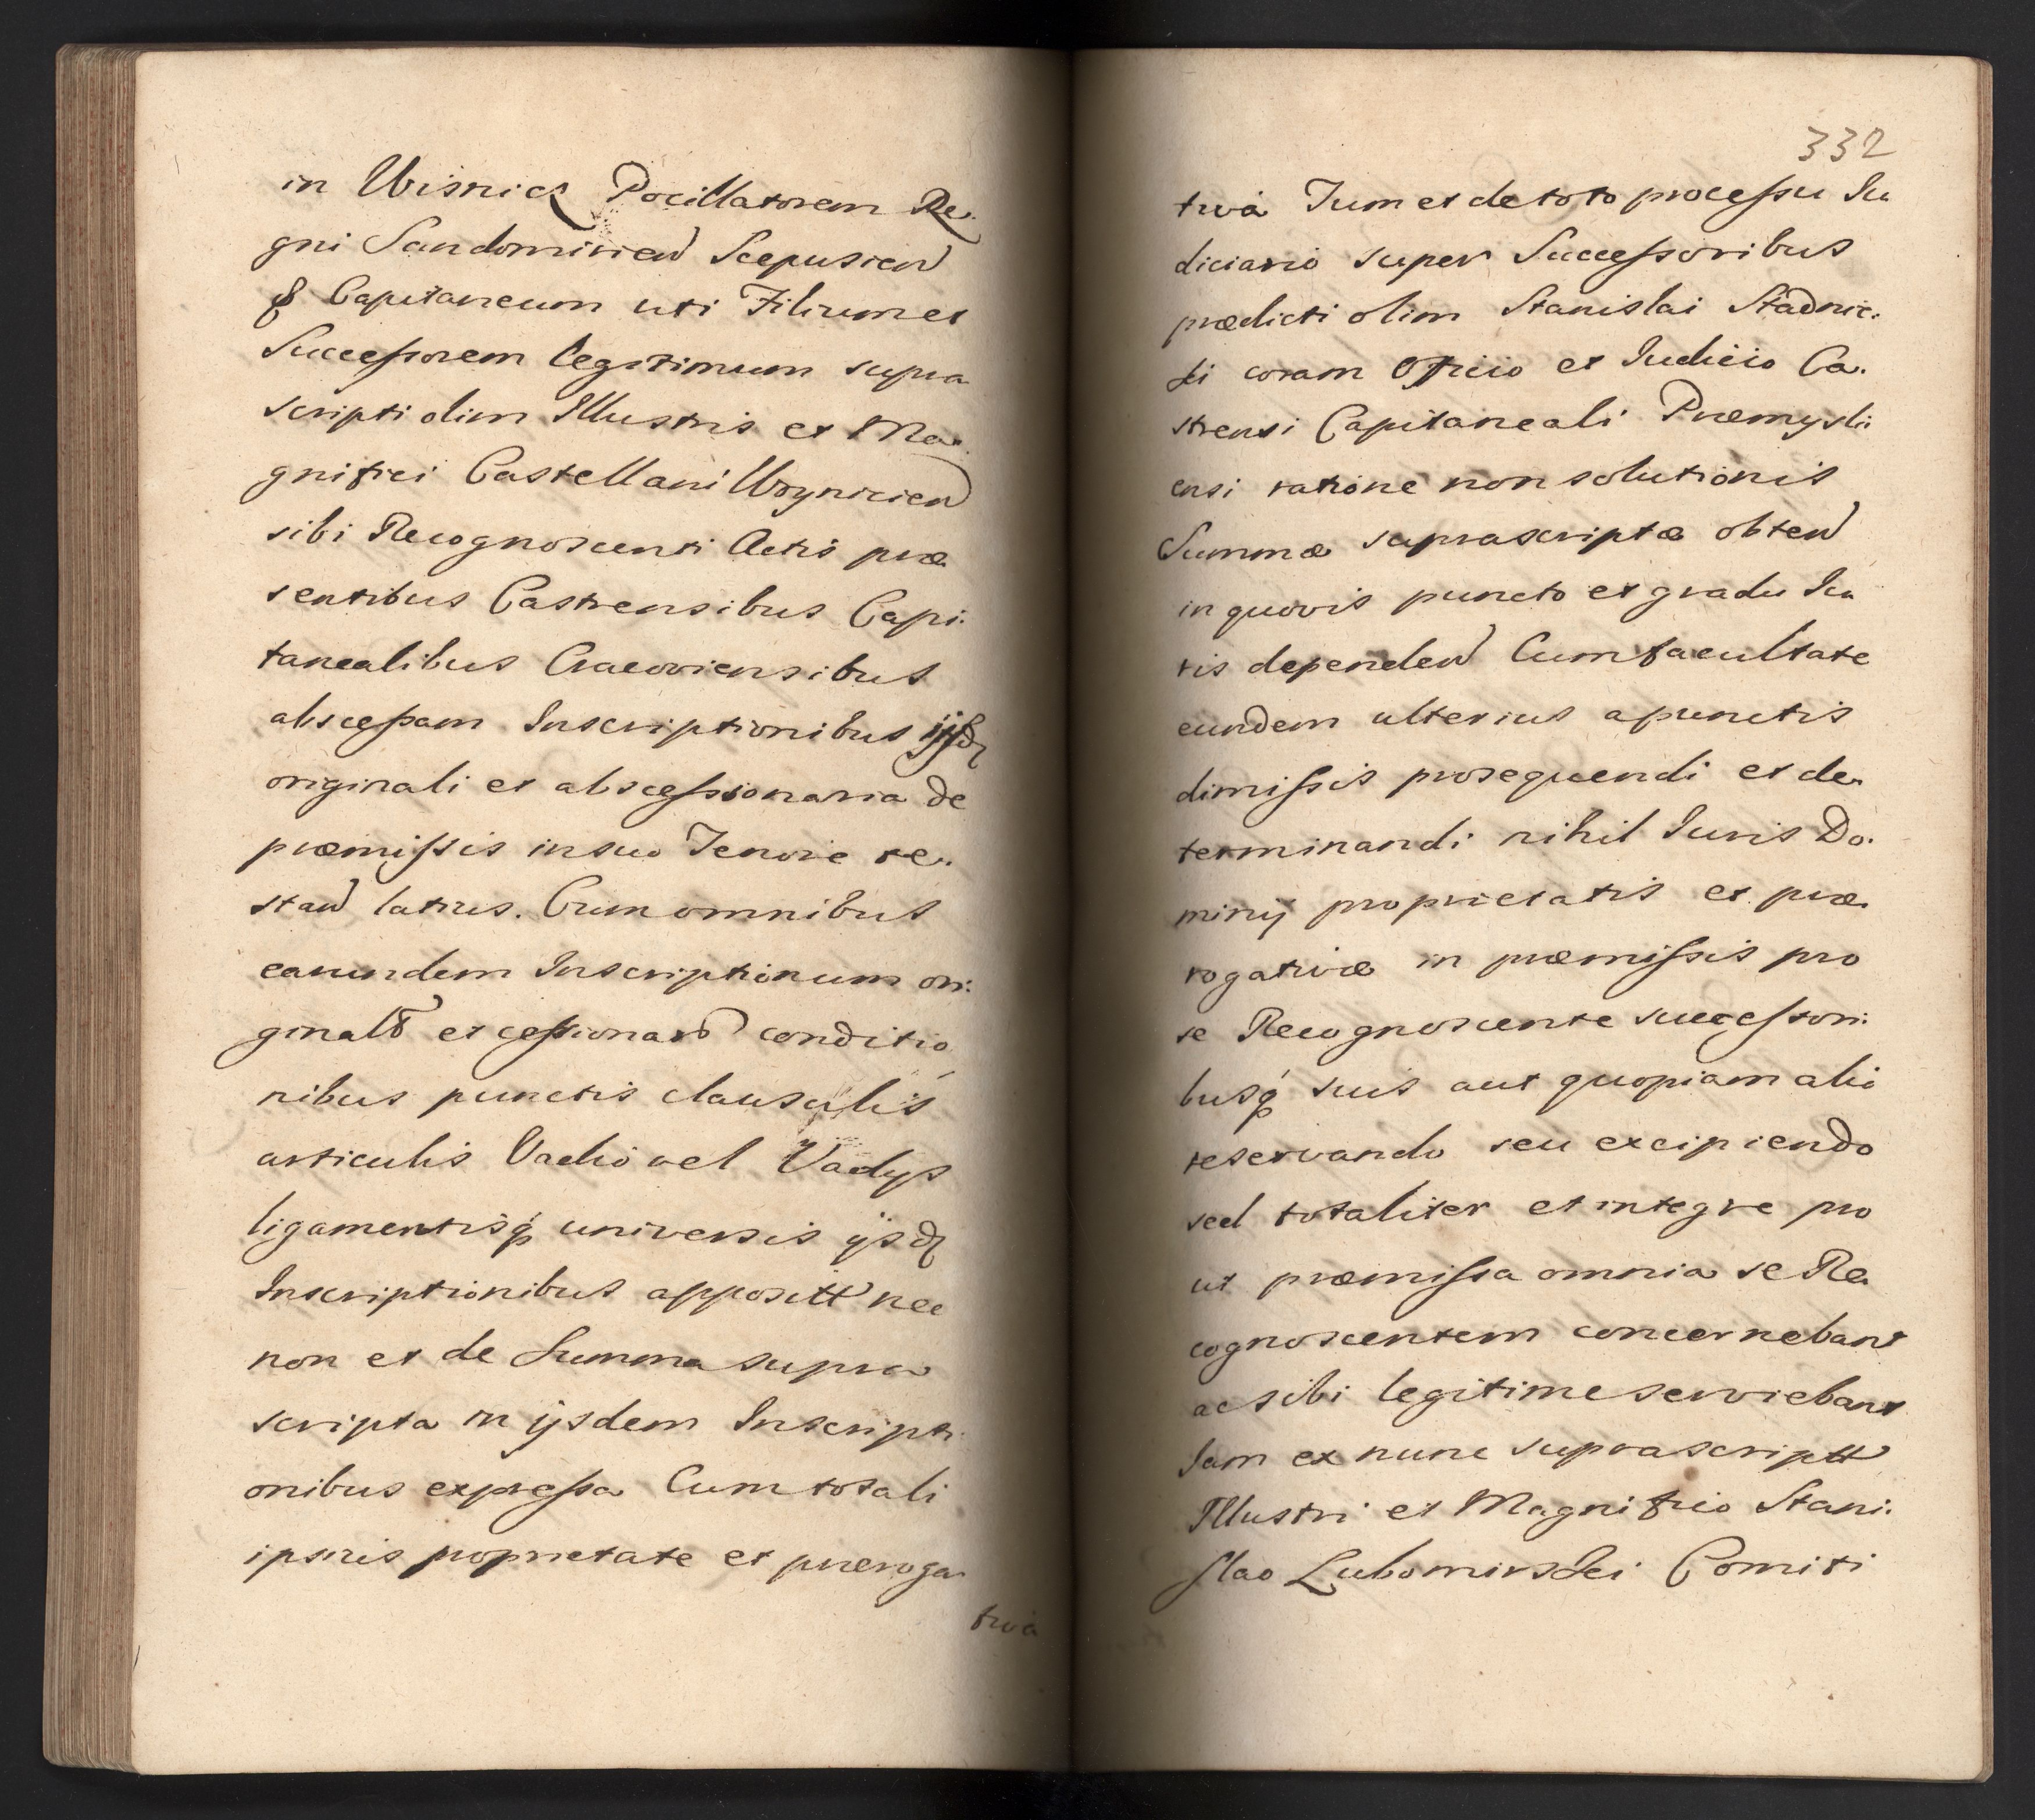 in Wisnicz Pocillatorem Re.
gni Sandomirien Scepusien
& Capitaneum uti Filium et
Successorem legitimum supra
scripti olim Illustris et Ma.
gnifici Castellani Woynicien
sibi Recognoscenti Actis præ
sentibus Castrensibus Capi.
tanealibus Cracoviensibus
abscessam Inscriptionibus ijsd
originali et abscessionaria de
præmissis in suo Tenore re.
stan latius. Cum omnibus
earundem Inscriptionum ori.
ginalὸ et cessionarὸ conditio
nibus punctis clausulis
articulis Vadio vel Vadijs
ligamentisq universis ijsd
Inscriptionibus apposittt nec
non et de Summa supra
scripta in ijsdem Inscripti
onibus expressa Cum totali
ipsius proprietate et præroga.
tiva
332
tiva Tum et de toto processu Iu
diciario super Successoribus
prædicti olim Stanislai Stadnic.
ki coram Officio et Iudicio Ca.
strensi Capitaneali Præmysli
ensi ratione non solutionis
Summæ suprascriptæ obten
in quovis puncto et gradu Iu
ris dependen Cum facultate
eundem ulterius a punctis
dimissis prosequendi et de.
terminandi nihil Iuris Do.
minij proprietatis et præ.
rogativæ in præmissis pro
se Recognoscente successori.
busq suis aut quopiam alio
reservando seu excipiendo
sed totaliter et integre pro
ut præmissa omnia se Re.
cognoscentem concernebant
ac sibi legitime serviebant
Iam ex nunc suprascriptt
Illustri et Magnifico Stani.
slao Lubomirski Comiti